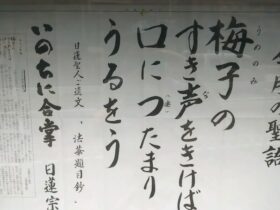 今月の聖語
うめのみ
梅子の
すき声をきけば
口につたまり
うるをう
日蓮聖人ご遺文、法華題目鈔.
いのちに合掌 日蓮宗